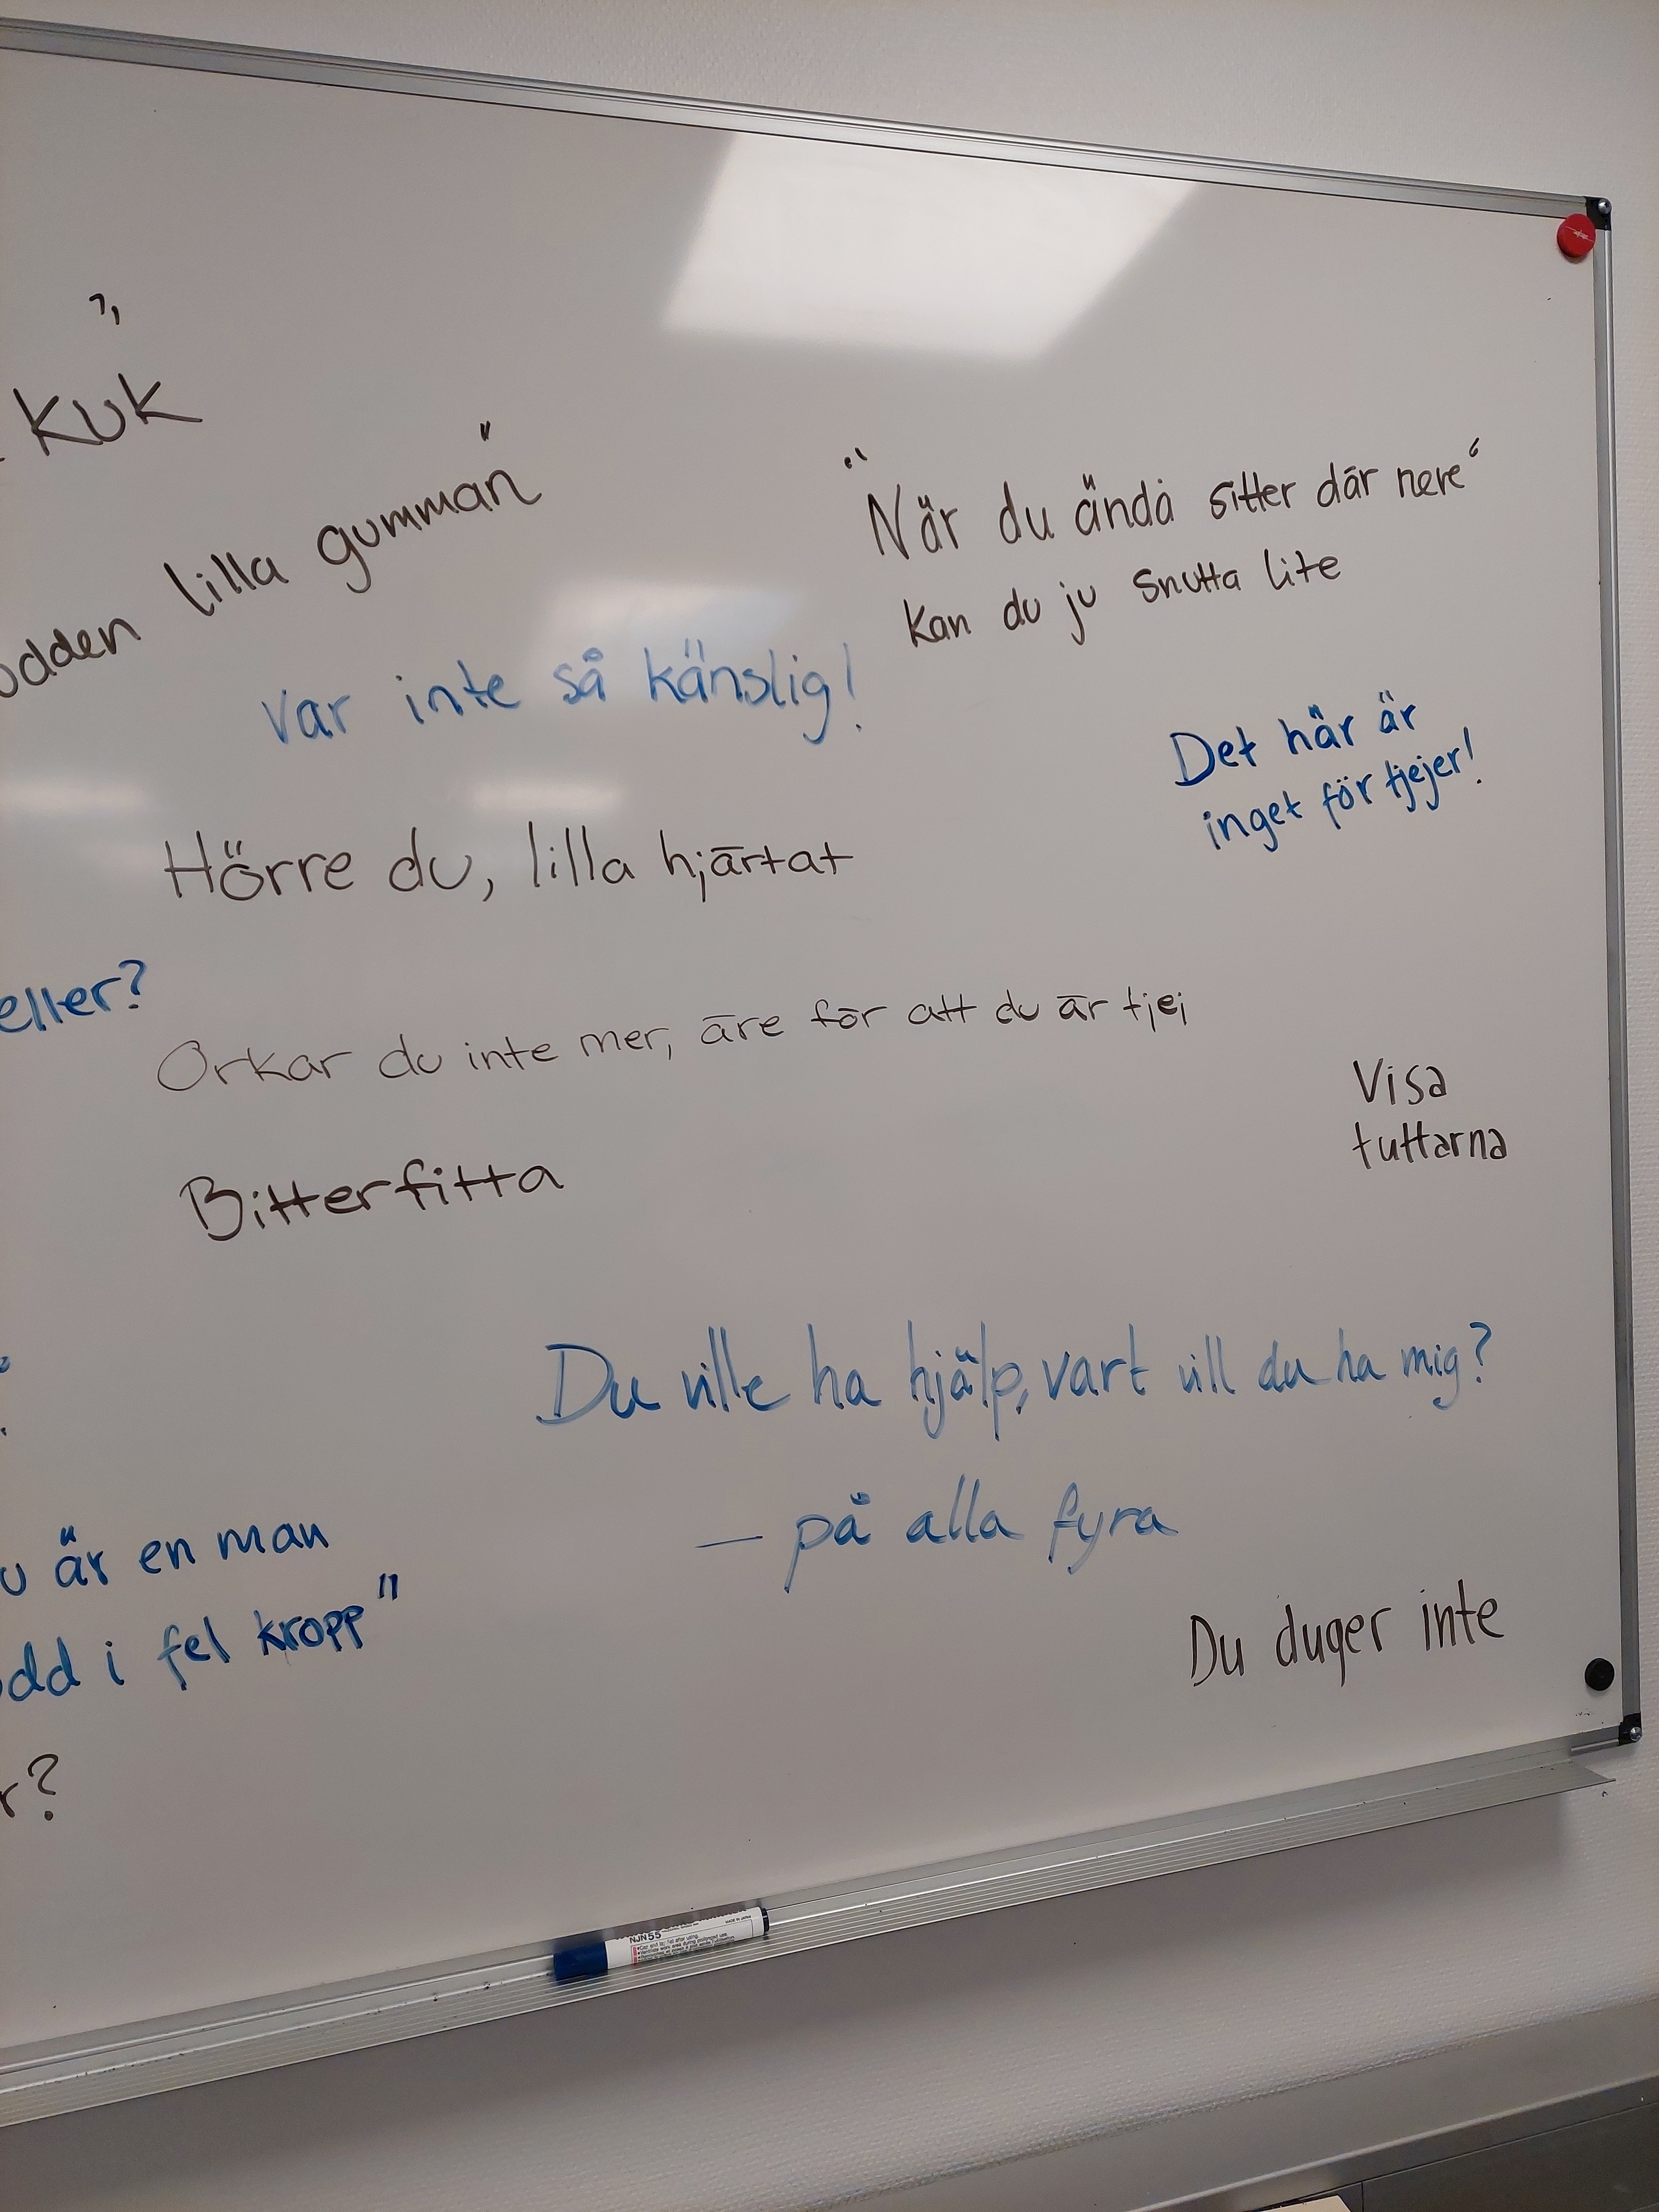 KUK
lilla gumman"
"När du ändå sitter där nere"
kan du ju snutta lite
var inte så känslig!
Det här är
inget för tjejer!
Hörre du, lilla hjärtat
eller?
Orkar du inte mer, äre för att du är tjej
Visa
tuttarna
Bitterfitta
Du ville ha hjälp, vart vill du ha mig?
– på alla fyra
är en man
i fel kropp"
Du duger inte
r?
NJN55